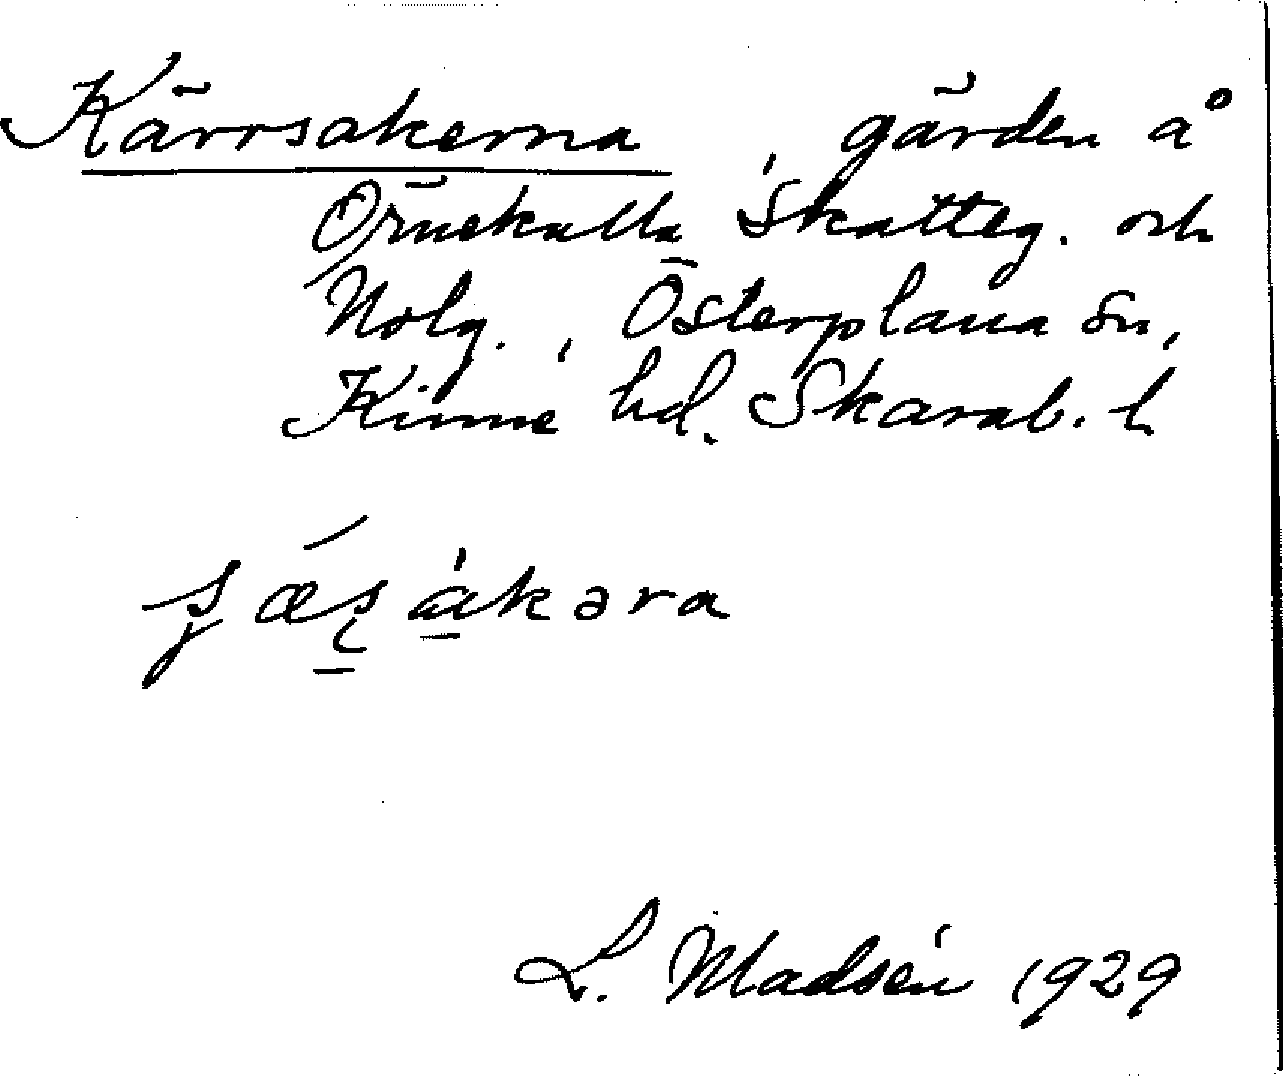 Kärrsakerna, gärden å
Örnekulla Skatteg. och
Nolg., Österplana sn,
Kinne hd. Skarab. l
L. Madsén 1929